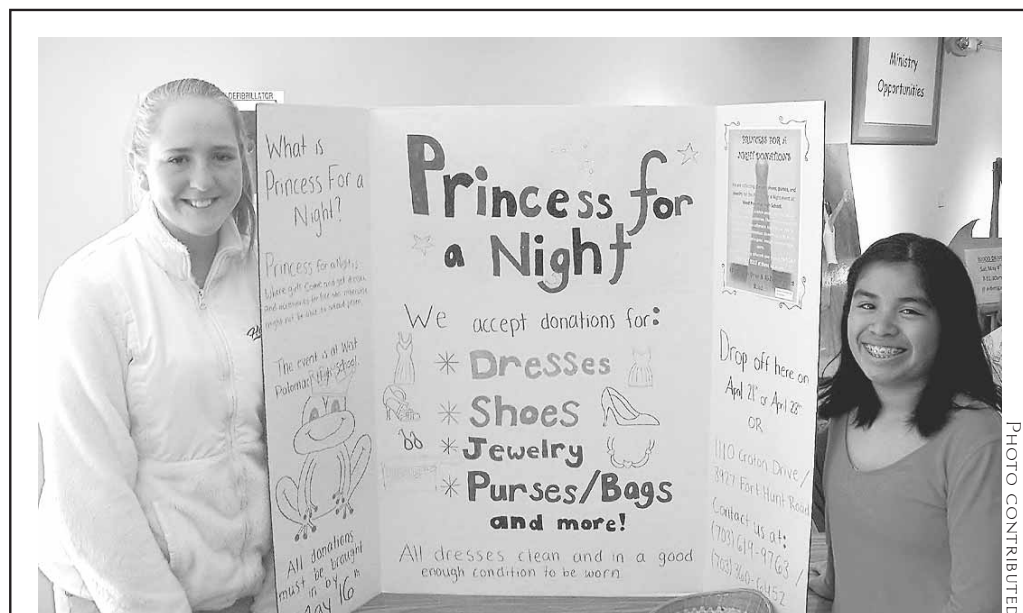 DEFIBRILLATOR
Ministry
Opportunities
What is
Princess For a
Night?
Princess for a Night is
where girls come and get dresses
and accessories for
might not be able to
The event is at West
Potomac High School.
All donations
must be brought
in by
May 16th
Princess for
a Night
We accept donations for:
* Dresses
* Shoes
* Jewelry
* Purses/Bags
and more!
All dresses clean and in a good
enough condition to be worn
PRINCESS FOR A
NIGHT DONATIONS
Drop off here on
April 21st or April 28th
OR
1110 Croton Drive/
8927 Fort Hunt Road
Contact us at:
(703)619-9763/
(703)360-6452
PHOTO CONTRIBUTED